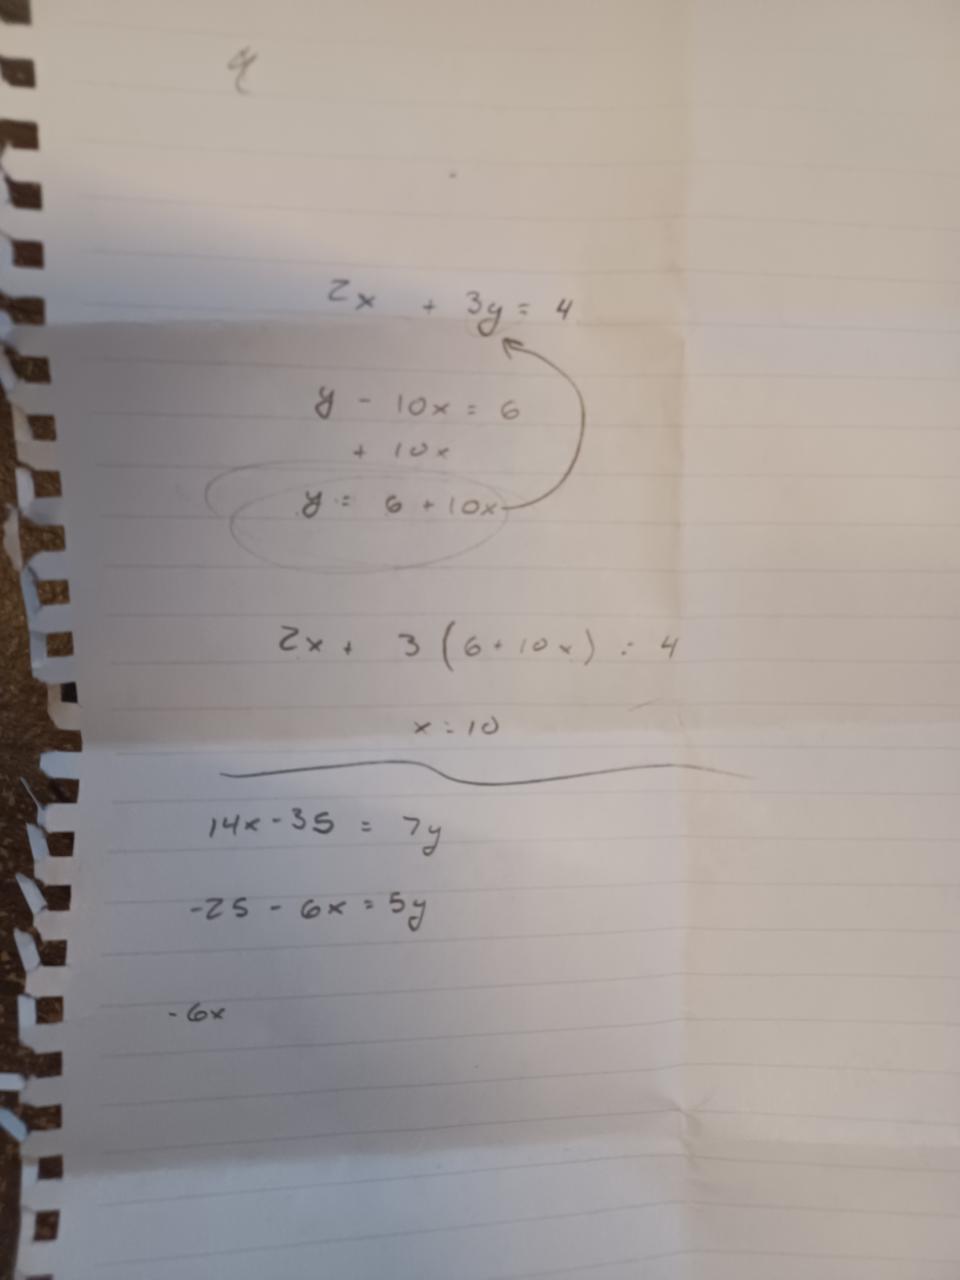 2x + 3y = 4
y - 10x = 6
+ 10x
y = 6 + 10x
2x + 3 (6 + 10x) = 4
x = 10
14x - 35 = 7y
-25 - 6x = 5y
-6x